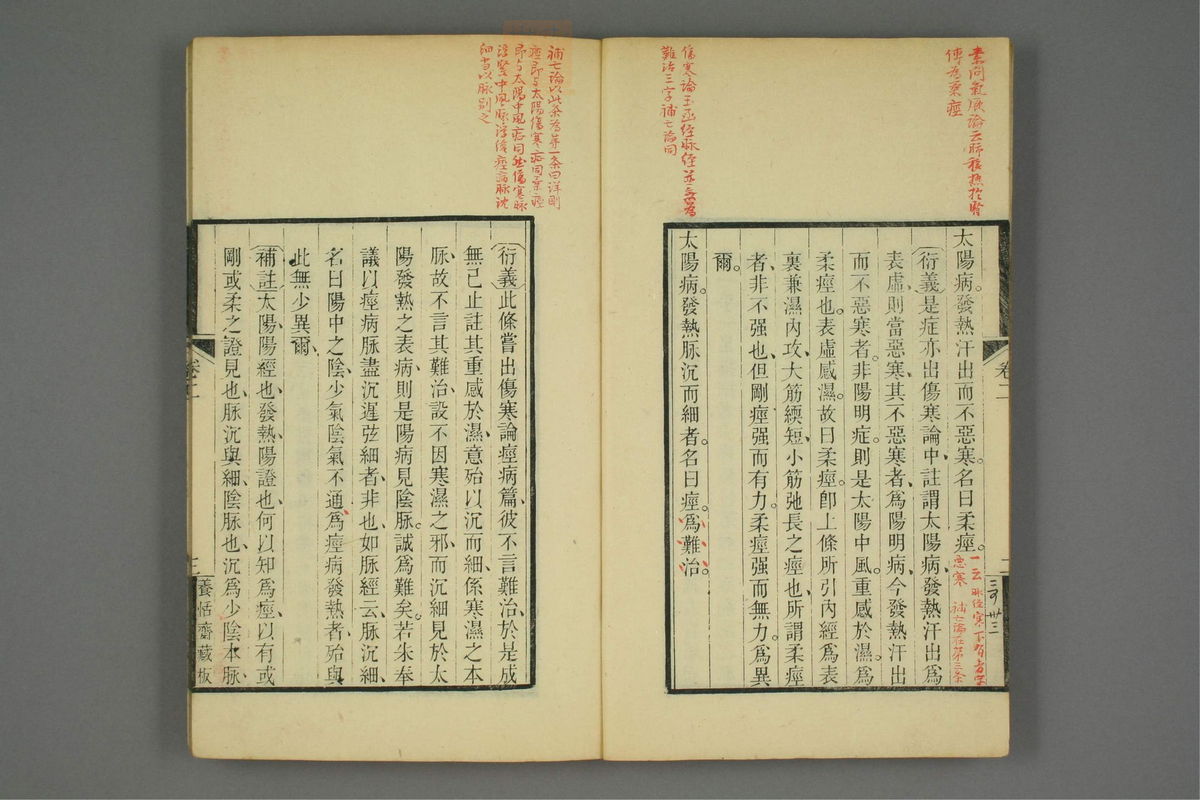 素問氣厥論云肺移熱於腎
傳為柔痓
傷寒論玉函經脉經並無為
難治三字補亡論同
太陽病。發熱汗出而不惡寒。名曰柔痓。
一云 脉經寒下有者字
惡寒 補亡論在第三条
衍義是症亦出傷寒論、中註謂太陽病、發熱汗出爲
表虛、則當惡寒、其不惡寒者、爲陽明病、今發熱汗出
而不惡寒者。非陽明症。則是太陽中風。重感於濕。爲
柔痓也。表虛感濕。故曰柔痓。卽上條所引內經爲表
裏兼濕內攻、大筋緛短、小筋弛長之痓也、所謂柔痓
者、非不强也、但剛痓强而有力。柔痓强而無力。爲異
爾。
太陽病。發熱脉沉而細者。名曰痓。爲難治。
卷二
三
補亡論以此条為第一条曰詳剛
痓即与太陽傷寒症同柔痓
即与太陽中風症同然傷寒脉
浮緊中風脉浮緩痓病脉沈
細当以脉別之
衍義此條嘗出傷寒論痓病篇、彼不言難治、於是成
無己止註其重感於濕、意殆以沉而細、係寒濕之本
脉、故不言其難治、設不因寒濕之邪、而沉細見於太
陽發熱之表病、則是陽病見陰脉。誠爲難矣。若朱奉
議以痓病脉盡沉遲弦細者、非也、如脉經云、脉沉細、
名曰陽中之陰少氣陰氣不通、爲痓病發熱者、殆與
此無少異爾、
補註太陽陽經也、發熱陽證也、何以知爲痓、以有或
剛或柔之證見也、脉沉與細、陰脉也、沉爲少陰本脉、
卷二
三
養恬齋藏板